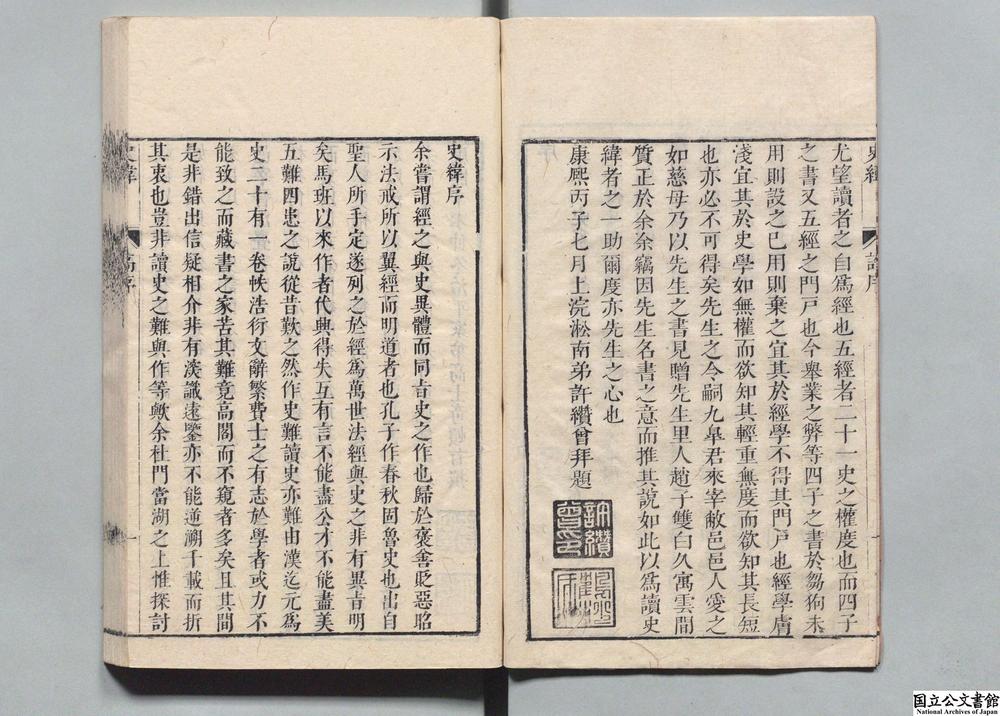 尤望讀者之自爲經也五經者二十一史之權度也而四子
之書又五經之門戸也今舉業之弊等四子之書於芻狗未
用則設之已用則棄之宜其於經學不得其門戸也經學膚
淺宜其於史學如無權而欲知其輕重無度而欲知其長短
也亦必不可得矣先生之令嗣九皋君來宰敝邑邑人愛之
如慈母乃以先生之書見贈先生里人趙子雙白久寓雲間
質正於余余竊因先生名書之意而推其說如此以爲讀史
緯者之一助爾度亦先生之心也
康熙丙子七月上浣淞南弟許纘曾拜題
許纘曾印
史緯序
余嘗謂經之與史異體而同旨史之作也歸於褒善貶惡昭
示法戒所以翼經而明道者也孔子作春秋固魯史也出自
聖人所手定遂列之於經爲萬世法經與史之非有異旨明
矣馬班以來作者代興得失互有言不能盡公才不能盡美
五難四患之說從昔歎之然作史難讀史亦難由漢迄元爲
史二十有一卷帙浩衍文辭繁費士之有志於學者或力不
能致之而藏書之家苦其難竟高閣而不窺者多矣且其間
是非錯出信疑相介非有淡識遠鑒亦不能遡溯千載而折
其衷也豈非讀史之難與作等歟余杜門當湖之上惟探討
史緯
高序
国立公文書館
National Archives of Japan